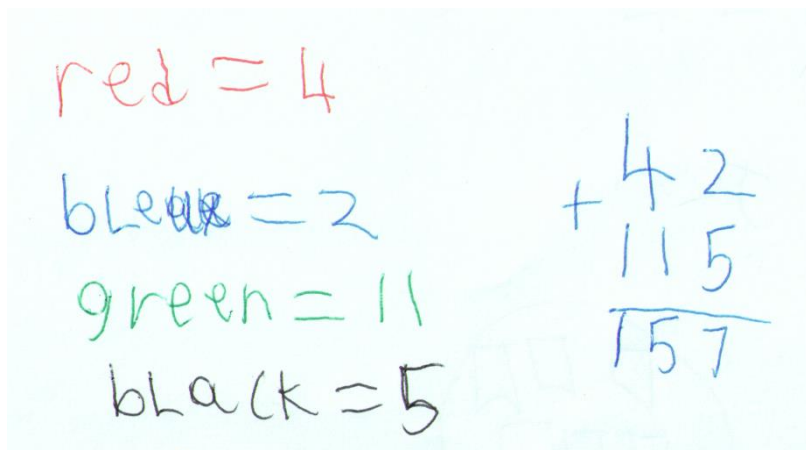 red = 4
blue = 2
green = 11
black = 5
42
+ 115
157